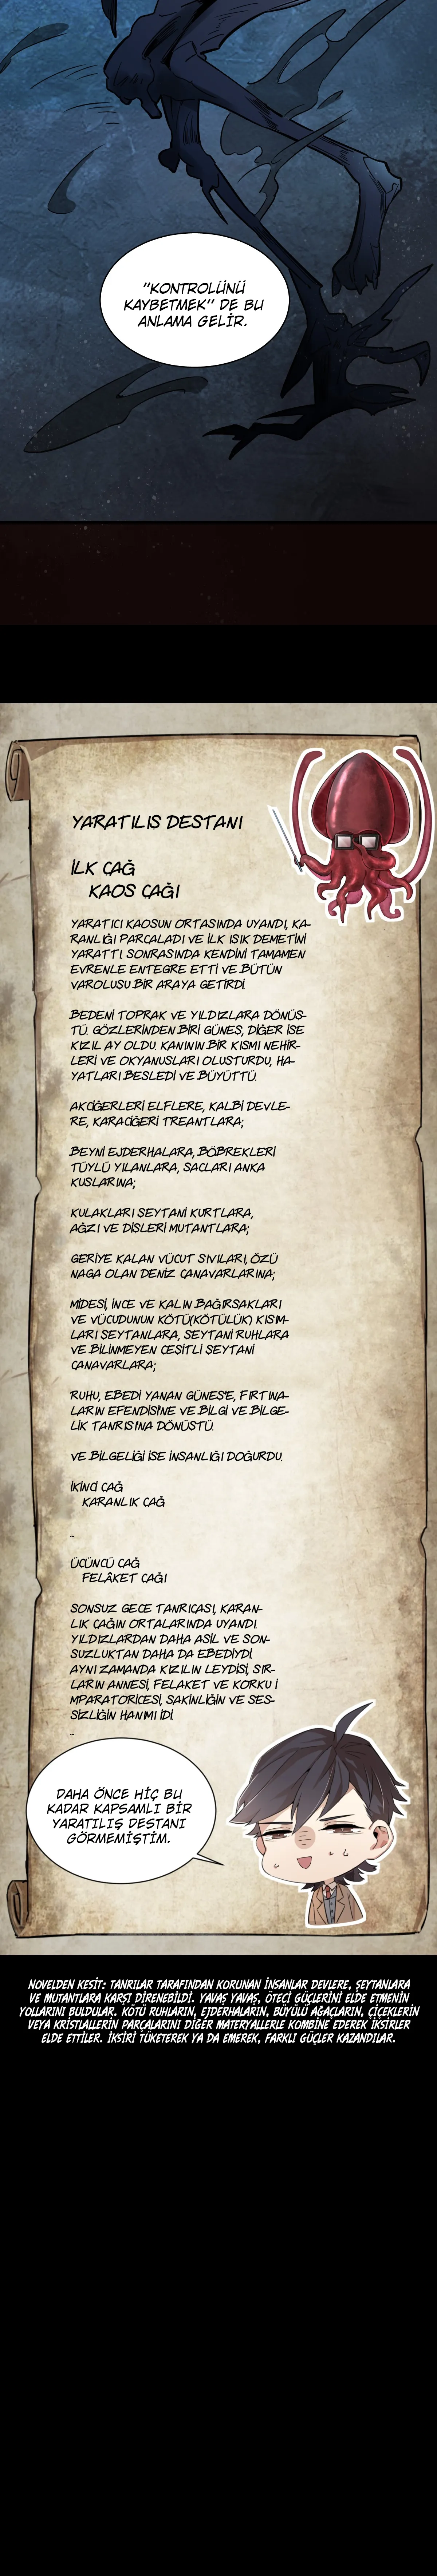 "KONTROLÜNÜ
KAYBETMEK" DE BU
ANLAMA GELİR.
YARATILIS DESTANI
İLK ÇAĞ
KAOS ÇAĞI
YARATICI KAOSUN ORTASINDA UYANDI, KA-
RANLIĞI PARÇALADI VE İLK ISIK DEMETİNİ
YARATTI. SONRASINDA KENDİNİ TAMAMEN
EVRENLE ENTEGRE ETTİ VE BÜTÜN
VAROLUSU BİR ARAYA GETİRDİ.
BEDENİ TOPRAK VE YILDIZLARA DÖNÜS-
TÜ. GÖZLERİNDEN BİRİ GÜNES, DİĞER İSE
KIZIL AY OLDU. KANININ BİR KISMI NEHİR-
LERİ VE OKYANUSLARI OLUSTURDU, HA-
YATLARI BESLEDİ VE BÜYÜTTÜ.
AKCİĞERLERİ ELFLERE, KALBİ DEVLE-
RE, KARACİĞERİ TREANTLARA;
BEYNİ EJDERHALARA, BÖBREKLERİ
TÜYLÜ YILANLARA, SACLARI ANKA
KUSLARINA;
KULAKLARI SEYTANİ KURTLARA,
AĞZI VE DİSLERİ MUTANTLARA;
GERİYE KALAN VÜCUT SIVILARI, ÖZÜ
NAGA OLAN DENİZ CANAVARLARINA;
MİDESİ, İNCE VE KALIN BAĞIRSAKLARI
VE VÜCUDUNUN KÖTÜ(KÖTÜLÜK) KISIM-
LARI SEYTANLARA, SEYTANİ RUHLARA
VE BİLİNMEYEN CESİTLİ SEYTANİ
CANAVARLARA;
RUHU, EBEDİ YANAN GÜNES'E, FIRTINA-
LARIN EFENDİSİ'NE VE BİLGİ VE BİLGE-
LİK TANRISI'NA DÖNÜSTÜ.
VE BİLGELİĞİ İSE İNSANLIĞI DOĞURDU.
İKİNCİ ÇAĞ
KARANLIK ÇAĞ
...
ÜCÜNCÜ ÇAĞ
FELÂKET ÇAĞI
SONSUZ GECE TANRICASI, KARAN-
LIK ÇAĞIN ORTALARINDA UYANDI.
YILDIZLARDAN DAHA ASİL VE SON-
SUZLUKTAN DAHA DA EBEDİYDİ.
AYNI ZAMANDA KIZILIN LEYDİSİ, SIR-
LARIN ANNESİ, FELAKET VE KORKU İ
MPARATORİCESİ, SAKİNLİĞİN VE SES-
SİZLİĞİN HANIMI İDİ.
...
DAHA ÖNCE HİÇ BU
KADAR KAPSAMLI BİR
YARATILIŞ DESTANI
GÖRMEMİŞTİM.
NOVELDEN KESİT: TANRILAR TARAFINDAN KORUNAN İNSANLAR DEVLERE, ŞEYTANLARA
VE MUTANTLARA KARŞI DİRENEBİLDİ. YAVAŞ YAVAŞ, ÖTECİ GÜÇLERİNİ ELDE ETMENİN
YOLLARINI BULDULAR. KÖTÜ RUHLARIN, EJDERHALARIN, BÜYÜLÜ AĞAÇLARIN, ÇİÇEKLERİN
VEYA KRİSTALLERİN PARÇALARINI DİĞER MATERYALLERLE KOMBİNE EDEREK İKSİRLER
ELDE ETTİLER. İKSİRİ TÜKETEREK YA DA EMEREK, FARKLI GÜÇLER KAZANDILAR.